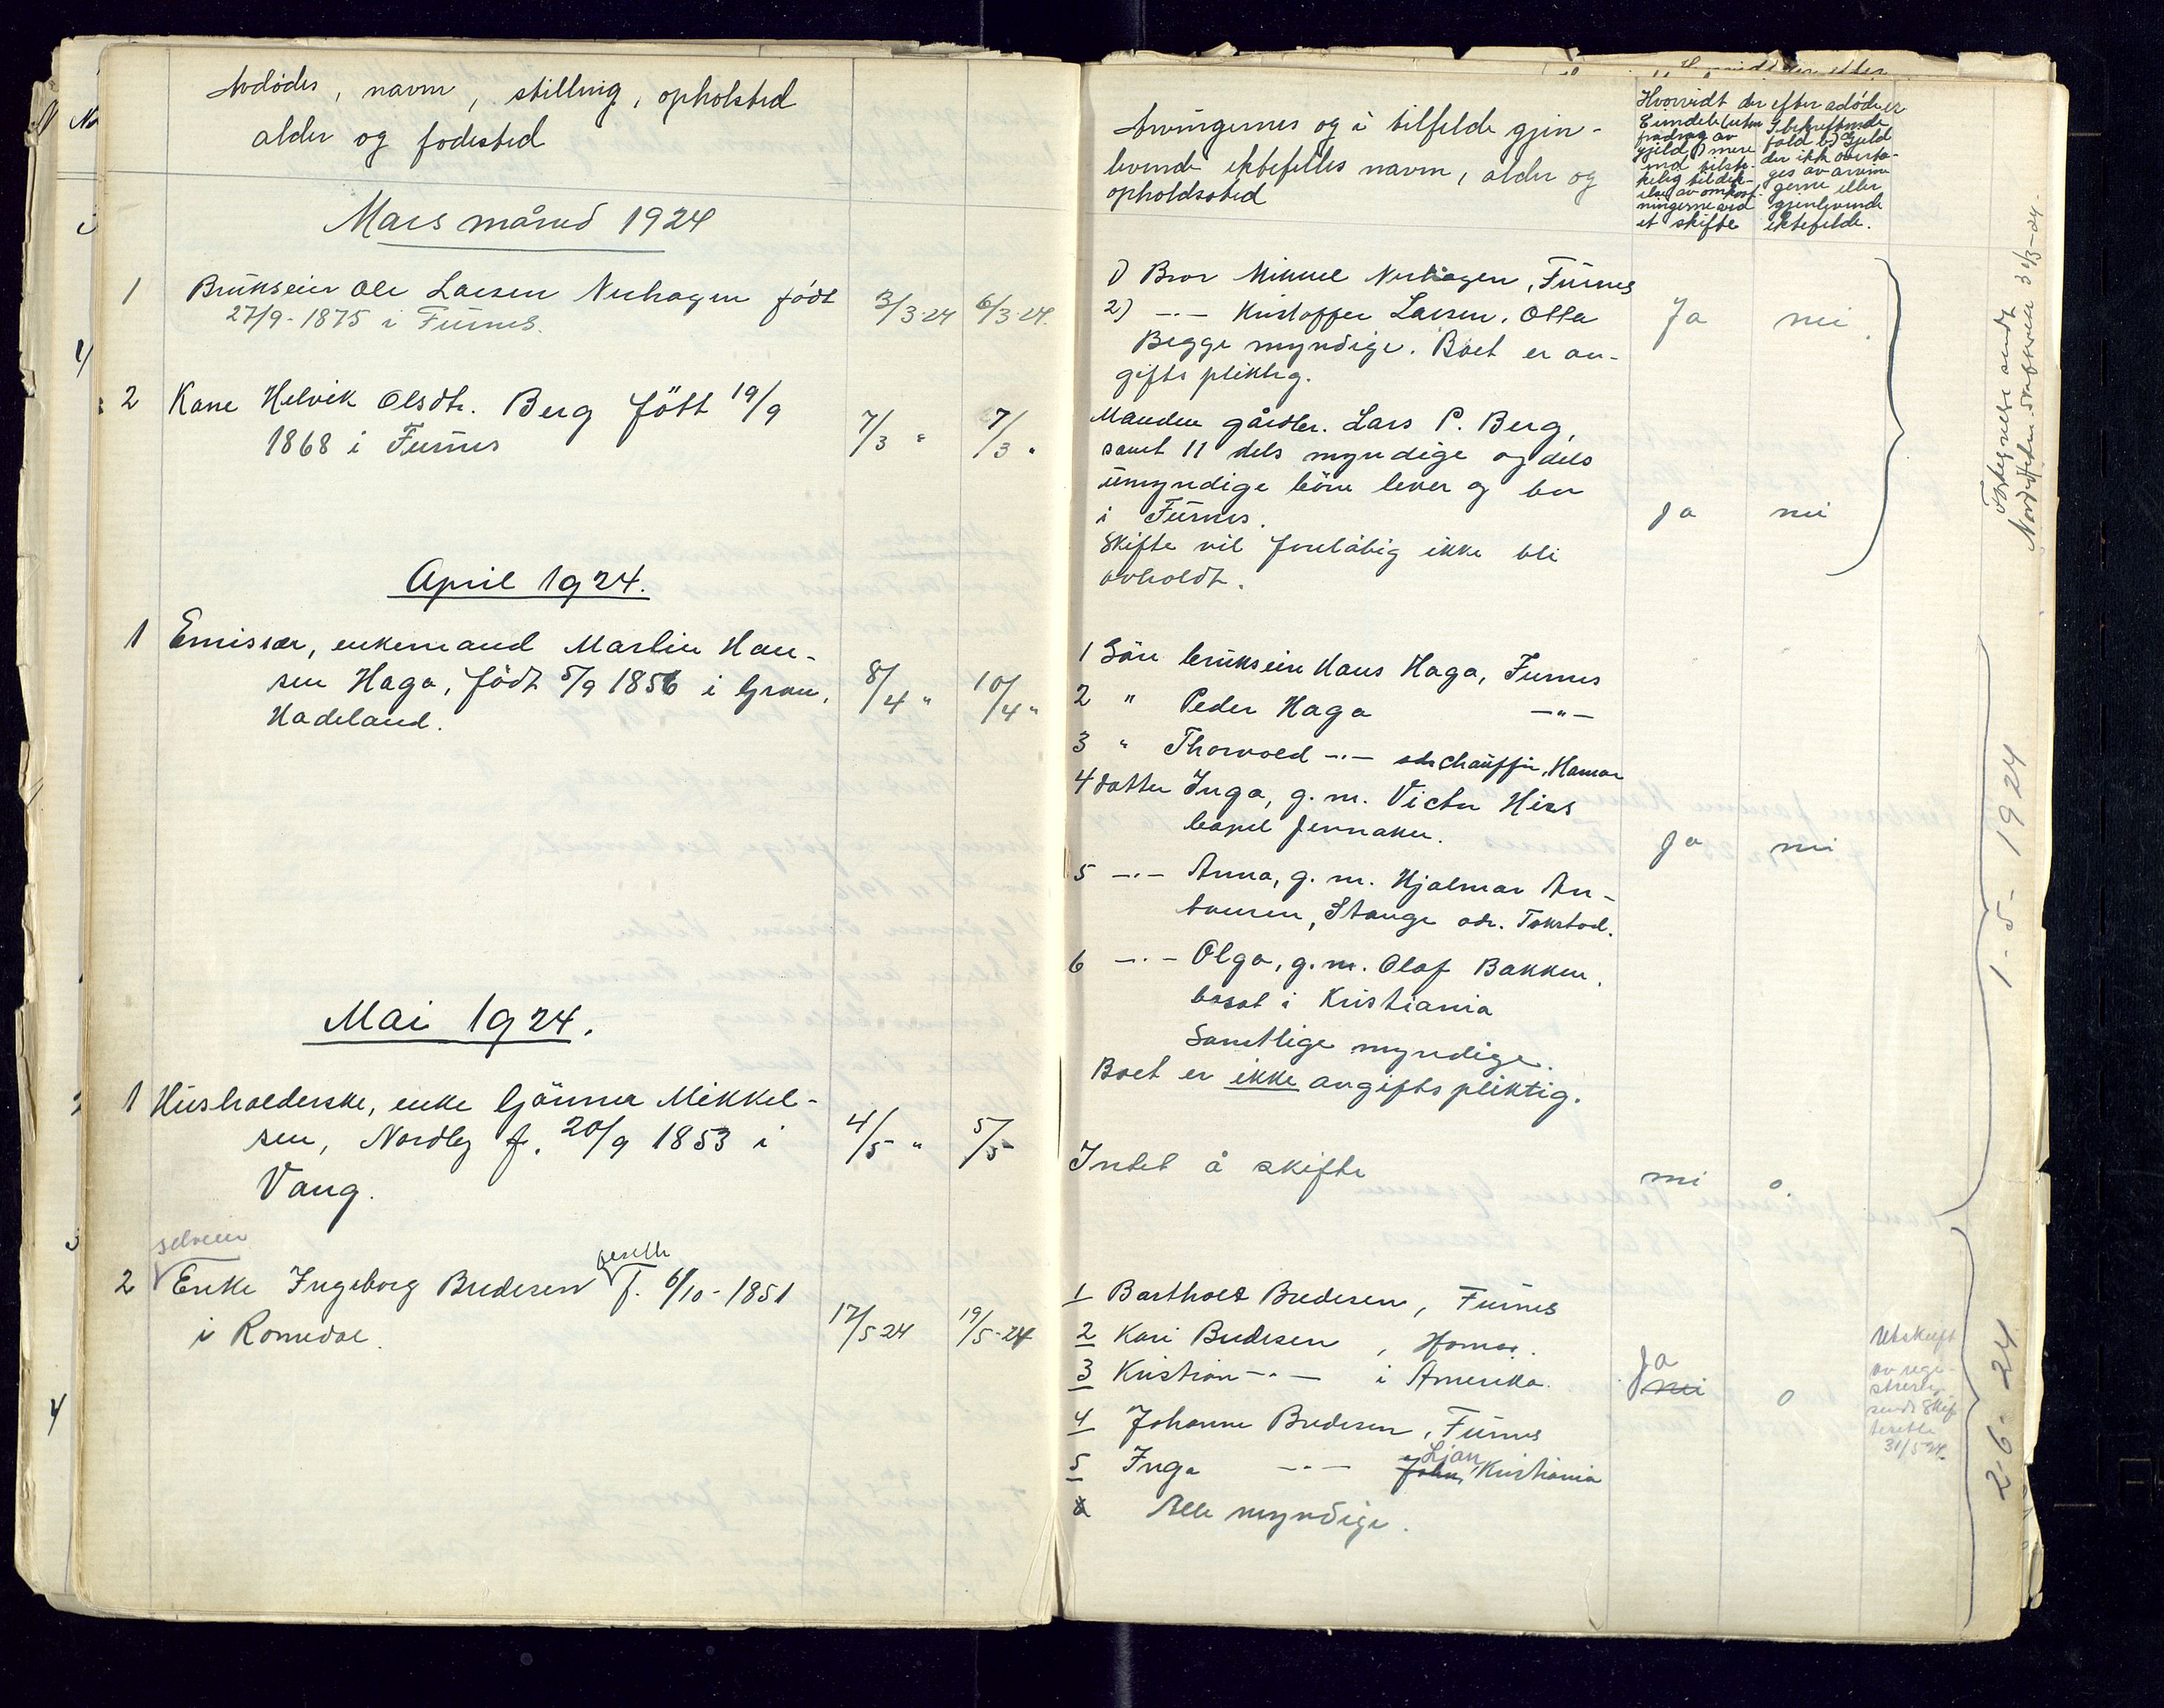 Avdødes, navn, stilling, opholsted
alder og fodested
Mars måned 1924
1 Brukseier Ole Larsen Nerhagen født
27/9-1875 i Furnes.
3/3-24 6/3-24.
2 Kone Helvik Olsdtr. Berg fött 19/9
1868 i Furnes
7/3 " 7/3 "
April 1924.
1 Emissær, enkemand Martin Han-
sen Haga, födt 5/9 1856 i Gran,
Hadeland.
8/4 " 10/4 "
Mai 1924.
1 Husholderske, enke Gunner Mikkel-
sen, Nordby f. 20/9 1853 i
Vang.
4/5 " 5/5
selveier
2 Enke Ingeborg Bredesen f. 6/10-1851
i Romedal.
17/5-24 19/5-24
Arvingernes og i tilfelde gjen-
levende ektefelles navn, alder og
opholdssted
Hvorvidt der efter adöde er
gjeld) mere
ind tilstr-
kelig til dek-
else av omkost-
ningerne ved
et skifte
fald b) Gjeld
der ikke overta-
ges av arvin-
gerne eller
gjenlevende
ektefelde.
1) Bror Mikael Nerhagen, Furnes
2) -"- Kristoffer Larsen, Otta
Begge myndige. Boet er av-
gifts pliktig.
Ja nei
Manden gårdbr. Lars P. Berg,
samt 11 dels myndige og dels
umyndige börn lever og bor
i Furnes.
Skifte vil foreløbig ikke bli
avholdt.
Ja nei
1 Sön brukseier Hans Haga, Furnes
2 " Peder Haga -"-
3 " Thorvald -"- chauffør, Hamar
4 datter Inga, g. m. Victor Hiss
bopel Jernaker.
5 -"- Anna, g. m. Hjalmar An-
tonsen, Stange adr. Tokstad.
6 -"- Olga, g. m. Olaf Bakken,
bosat i Kristiania
Samtlige myndige.
Boet er ikke avgiftspliktig.
Ja nei
Intet å skifte
nei 0
1 Barthold Bredesen, Furnes
2 Kari Bredesen, Hamar.
3 Kristian -"- i Amerika.
4 Johanne Bredesen, Furnes
5 Inga -"- Ljan, Kristiania
Alle myndige.
Ja
nei 0
Utskrift
av regi-
strering
sendt Skif-
teretten
31/5 24.
Fortegnelse sendt
Nord-Hedm. sorenskriveri 31/3-24.
1-5-1924
2-6-24